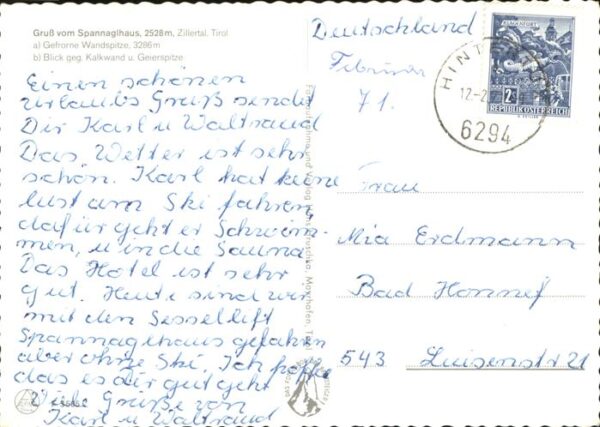 Gruß vom Spannaglhaus, 2528 m, Zillertal, Tirol
a) Gefrorne Wandspitze, 3286 m
b) Blick geg. Kalkwand u. Geierspitze
Einen schönen
urlaubs Gruß sendet
Dir Karl u Waltraud
Das Wetter ist sehr
schön. Karl hat keine
lust am Ski fahren,
dafür geht er Schwim-
men, u in die Sauna
Das Hotel ist sehr
gut. Heute sind wir
mit den Sessellift
Spannaglhaus gefahren
aber ohne Ski, Ich hoffe
das es dir gut geht
Viele Grüße von
Karl u Waltraud
Deutschland
Februar
71.
KLAGENFURT
S 2
REPUBLIK ÖSTERREICH
12-2
6294
Frau
Mia Erdmann
Bad Honnef
543 Luisenstr 21